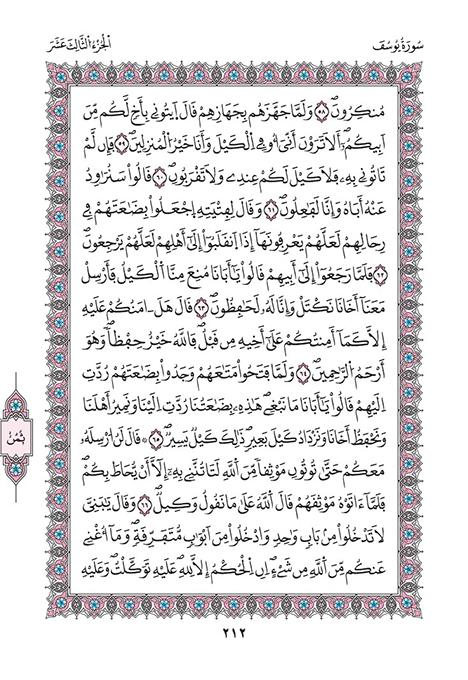 سُورَةُ يُوسُفَ
اَلْجُزْءُ الثَّالِثَ عَشَرَ
مُنكِرُونَۖ ٥٨ وَلَمَّا جَهَّزَهُم بِجَهَازِهِمْ قَالَ اَيتُونِے بِأَخٖ لَّكُم مِّنَ
اَبِيكُمُۥٓۖ أَلَا تَرَوْنَ أَنِّيَ أُوفِے اِلْكَيْلَ وَأَنَا خَيْرُ اُلْمُنزِلِينَۖ ٥٩ فَإِن لَّمْ
تَاتُونِے بِهِۦ فَلَا كَيْلَ لَكُمْ عِندِے وَلَا تَقْرَبُونِۖ ٦٠ قَالُواْ سَنُرَٰوِدُ
عَنْهُ أَبَاهُ وَإِنَّا لَفَٰعِلُونَۖ ٦١ وَقَالَ لِفِتْيَتِهِ اِجْعَلُواْ بِضَٰعَتَهُمْ فِے
رِحَالِهِمْ لَعَلَّهُمْ يَعْرِفُونَهَآ إِذَا اَنقَلَبُوٓاْ إِلَيٰٓ أَهْلِهِمْ لَعَلَّهُمْ يَرْجِعُونَۖ
٦٢ فَلَمَّا رَجَعُوٓاْ إِلَيٰٓ أَبِيهِمْ قَالُواْ يَٰٓأَبَانَا مُنِعَ مِنَّا اَلْكَيْلُ فَأَرْسِلْ
مَعَنَآ أَخَانَا نَكْتَلْ وَإِنَّا لَهُۥ لَحَٰفِظُونَۖ ٦٣ قَالَ هَلَ اٰمَنُكُمْ عَلَيْهِ
إِلَّا كَمَآ أَمِنتُكُمْ عَلَيٰٓ أَخِيهِ مِن قَبْلُۖ فَاللَّهُ خَيْرٌ حِفْظاٗۖ وَهُوَ
أَرْحَمُ اُلرَّٰحِمِينَۖ ٦٤ وَلَمَّا فَتَحُواْ مَتَٰعَهُمْ وَجَدُواْ بِضَٰعَتَهُمْ رُدَّتِ
اِلَيْهِمْ قَالُواْ يَٰٓأَبَانَا مَا نَبْغِےۖ هَٰذِهِۦ بِضَٰعَتُنَا رُدَّتِ اِلَيْنَا وَنَمِيرُ أَهْلَنَا
وَنَحْفَظُ أَخَانَا وَنَزْدَادُ كَيْلَ بَعِيرٖۖ ذَٰلِكَ كَيْلٞ يَسِيرٞۖ ٦٥ قَالَ لَنُ ا۟رْسِلَهُۥ
مَعَكُمْ حَتَّيٰ تُوتُونِ مَوْثِقاٗ مِّنَ اَللَّهِ لَتَاتُنَّنِے بِهِۦٓ إِلَّآ أَنْ يُّحَاطَ بِكُمْۖ
فَلَمَّآ ءَاتَوْهُ مَوْثِقَهُمْ قَالَ اَللَّهُ عَلَيٰ مَا نَقُولُ وَكِيلٞۖ ٦٦ وَقَالَ يَٰبَنِيَّ
لَا تَدْخُلُواْ مِنۢ بَابٖ وَٰحِدٖ وَادْخُلُواْ مِنَ اَبْوَٰبٖ مُّتَفَرِّقَةٖۖ وَمَآ أُغْنِے
عَنكُم مِّنَ اَللَّهِ مِن شَےْءٍۖ اِنِ اِلْحُكْمُ إِلَّا لِلهِۖ عَلَيْهِ تَوَكَّلْتُۖ وَعَلَيْهِ
ثُمُنْ
٢١٢